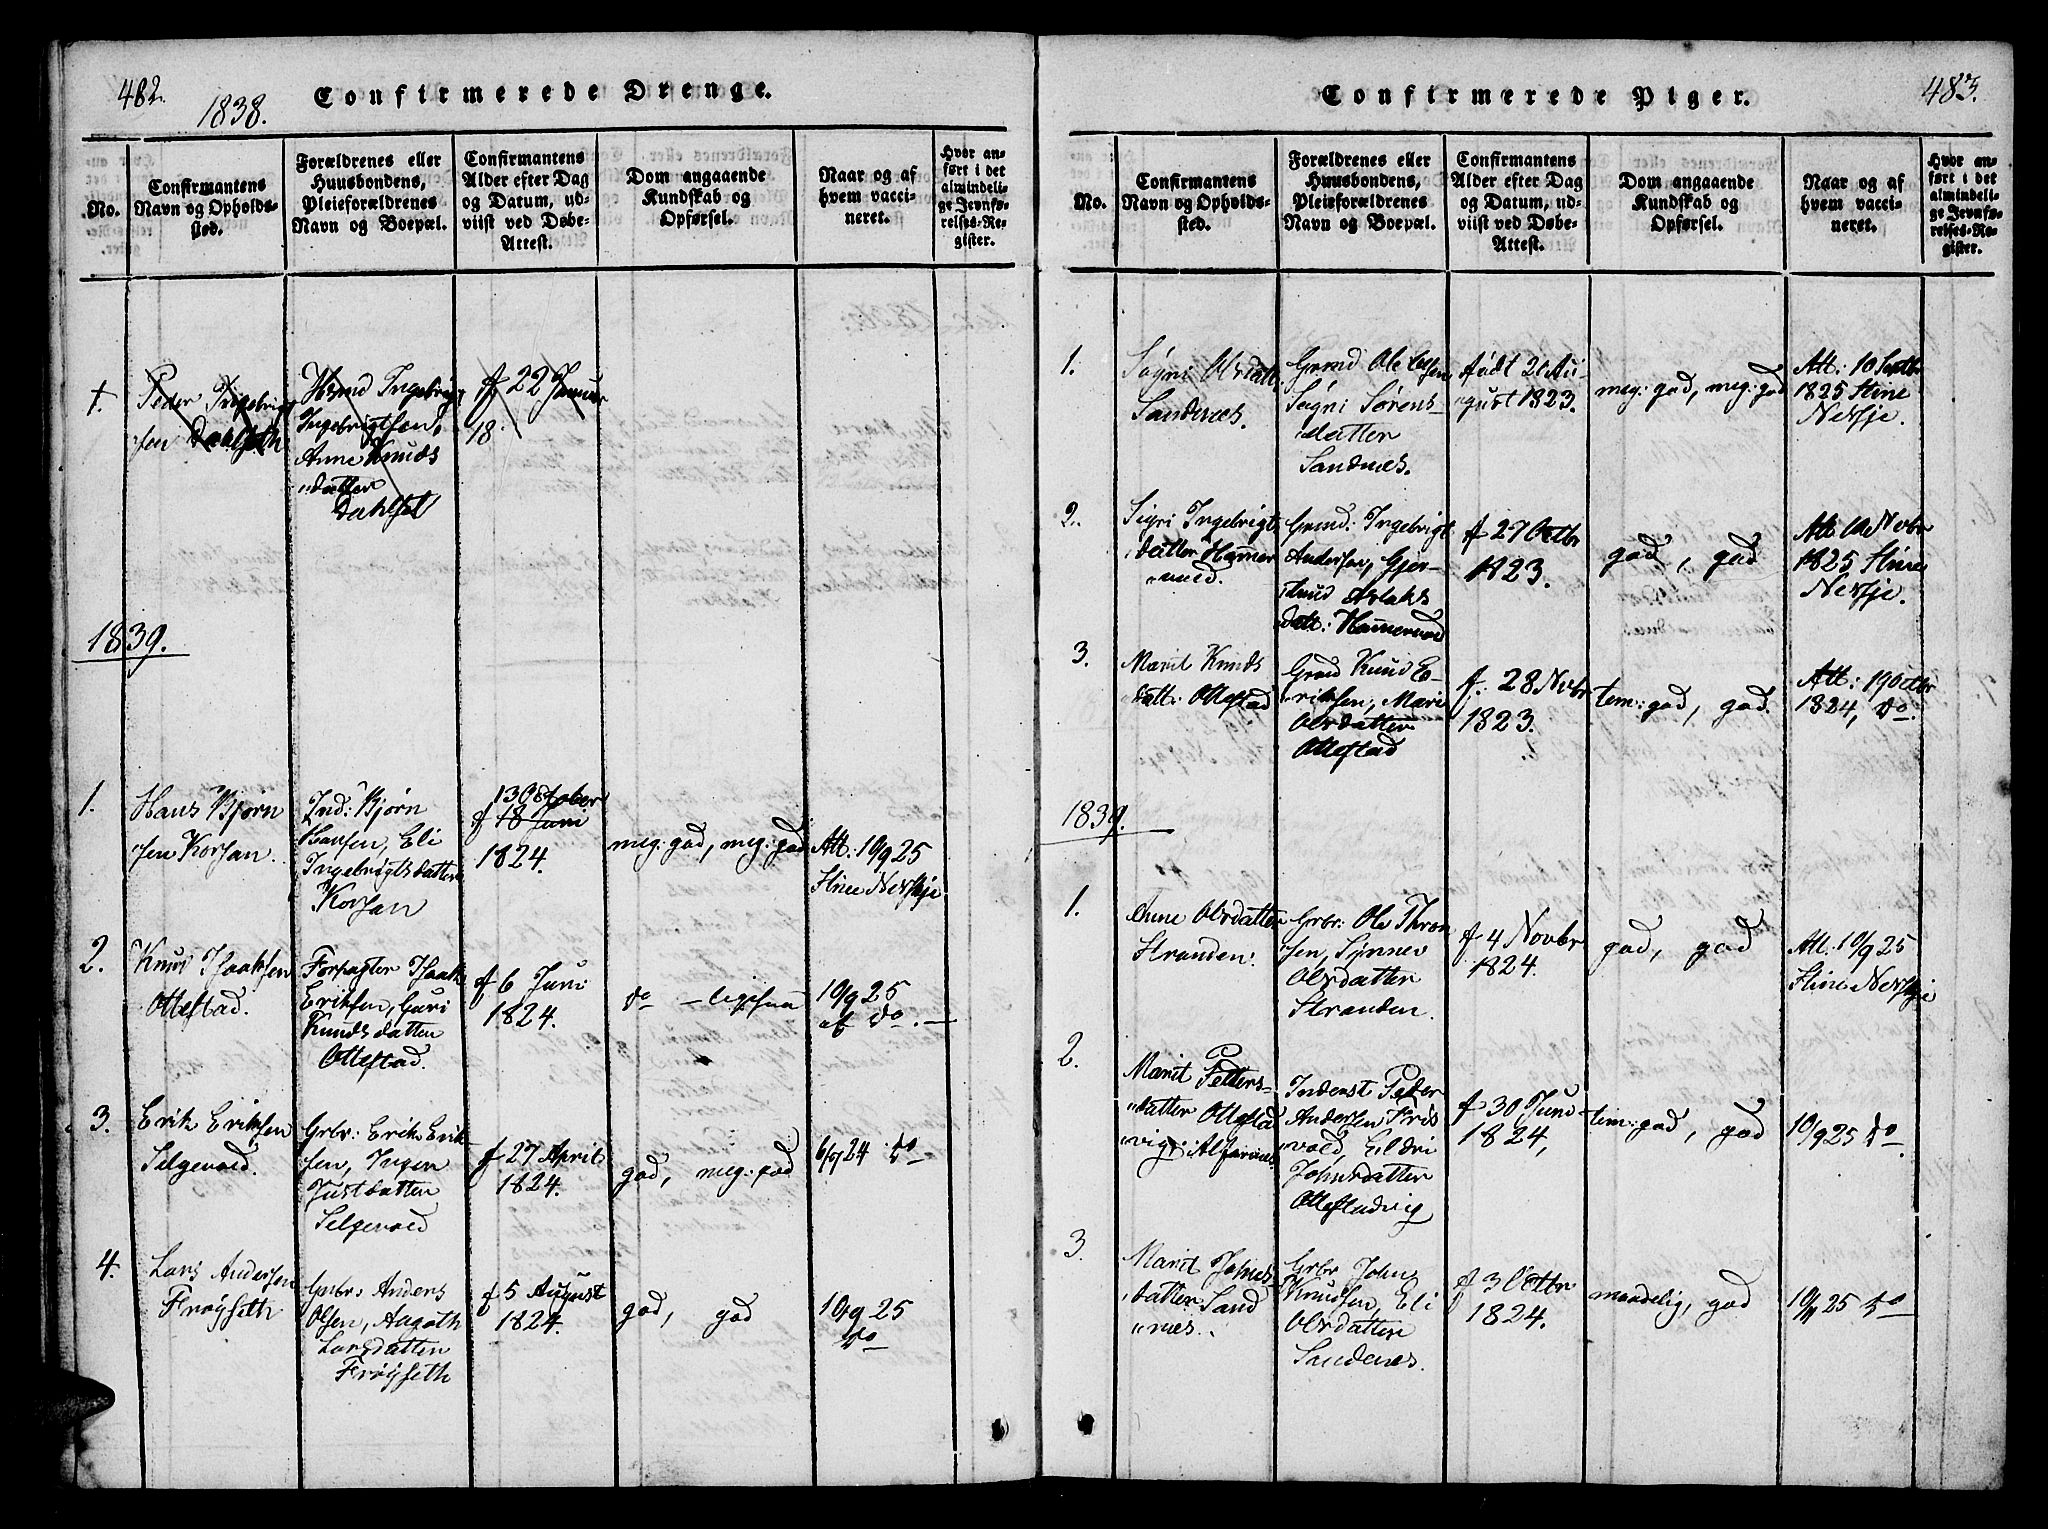 482.
1838.
Confirmerede Drenge.
No.
Confirmantens
Navn og Opholds-
sted.
Forældrenes eller
Huusbondens,
Pleieforældrenes
Navn og Boepæl.
Confirmantens
Alder efter Dag
og Datum, ud-
viist ved Døbe-
Attest.
Dom angaaende
Kundskab og
Opførsel.
Naar og af
hvem vacci-
neret.
Hvor an-
ført i det
almindeli-
ge Jevnfø-
relses-Re-
gister.
Peder Ingebrigt
sen Dahlseth
Ingebrigt
Ingebrigtsen,
Anne Knuds
datter
Dahlset
f 22 Januar
18
1839.
1.
Hans Bjørn
sen Korsan.
Ind: Bjørn
Hansen, Eli
Ingebrigtsdatter
Korsan
13 October
f 18 Juni
1824.
meg: god, meg: god
Att: 10/9 25
Stine Nersje.
2.
Knud Isaaksen
Ottestad.
Forpagter Isaak
Eriksen, Guri
Knudsdatter
Ottestad.
f 6 Juni
1824.
do – ligesaa
10/9 25
af do. —
3.
Erik Eriksen
Selgevold.
Grbr: Erik Erik
sen,
Justdatter
Selgevold
f 27 April
1824.
god, meg: god
6/9 24 do
4.
Lars Andersen
Frøyseth
Grbr: Anders
Olsen, Aagoth
Larsdatter
Frøyseth
f 5 August
1824.
god, god
10/9 25
do
Confirmerede Piger.
483.
No.
Confirmantens
Navn og Opholds-
sted.
Forældrenes eller
Huusbondens,
Pleieforældrenes
Navn og Boepæl.
Confirmantens
Alder efter Dag
og Datum, ud-
viist ved Døbe-
Attest.
Dom angaaende
Kundskab og
Opførsel.
Naar og af
hvem vacci-
neret.
Hvor an-
ført i det
almindeli-
ge Jevnfø-
relses-Re-
gister.
1.
Søgni Olsdatt:
Sandnes.
Grmd Ole Olsen
Søgni Sørens-
datter
Sandnes.
født 21 Au-
gust 1823.
meg: god, meg: god
Att: 10 Septbr
1825 Stine
Nersje.
2.
Sigri Ingebrigts
datter Hamer
vold.
Grmd: Ingebrigt
Andersen, Gjer-
trud Aslaks
datt: Hamervold
f 27 Octbr
1823.
god, god
Att: 10 Novbr
1825 Stine
Nersje.
3.
Marit Knuds
datt: Ottestad
Grmd Knud E-
riksen, Mari
Olsdatter
Ottestad
f. 28 Novbr
1823.
tem: god, god.
Att: 19 Octbr
1824, do.
1839.
1.
Anne Olsdatter
Stranden.
Grbr: Ole Thron
sen, Synnev
Olsdatter
Stranden.
f 4 Novbr
1824.
god, god
Att: 10/9 25
Stine Nersje
2.
Marit Petters-
datter Ottestad
vig: Alfarnes.
Inderst Peder
Andersen Fris
vold, Eldri
Johnsdatter
Ottestadvig
f 30 Juni
1824,
tem: god, god
10/9 25 do
3.
Marit Johns-
datter Sand
nes.
Grbr John
Knudsen, Eli
Olsdatter
Sandnes.
f 3 Octbr
1824.
maadelig, god
25 do